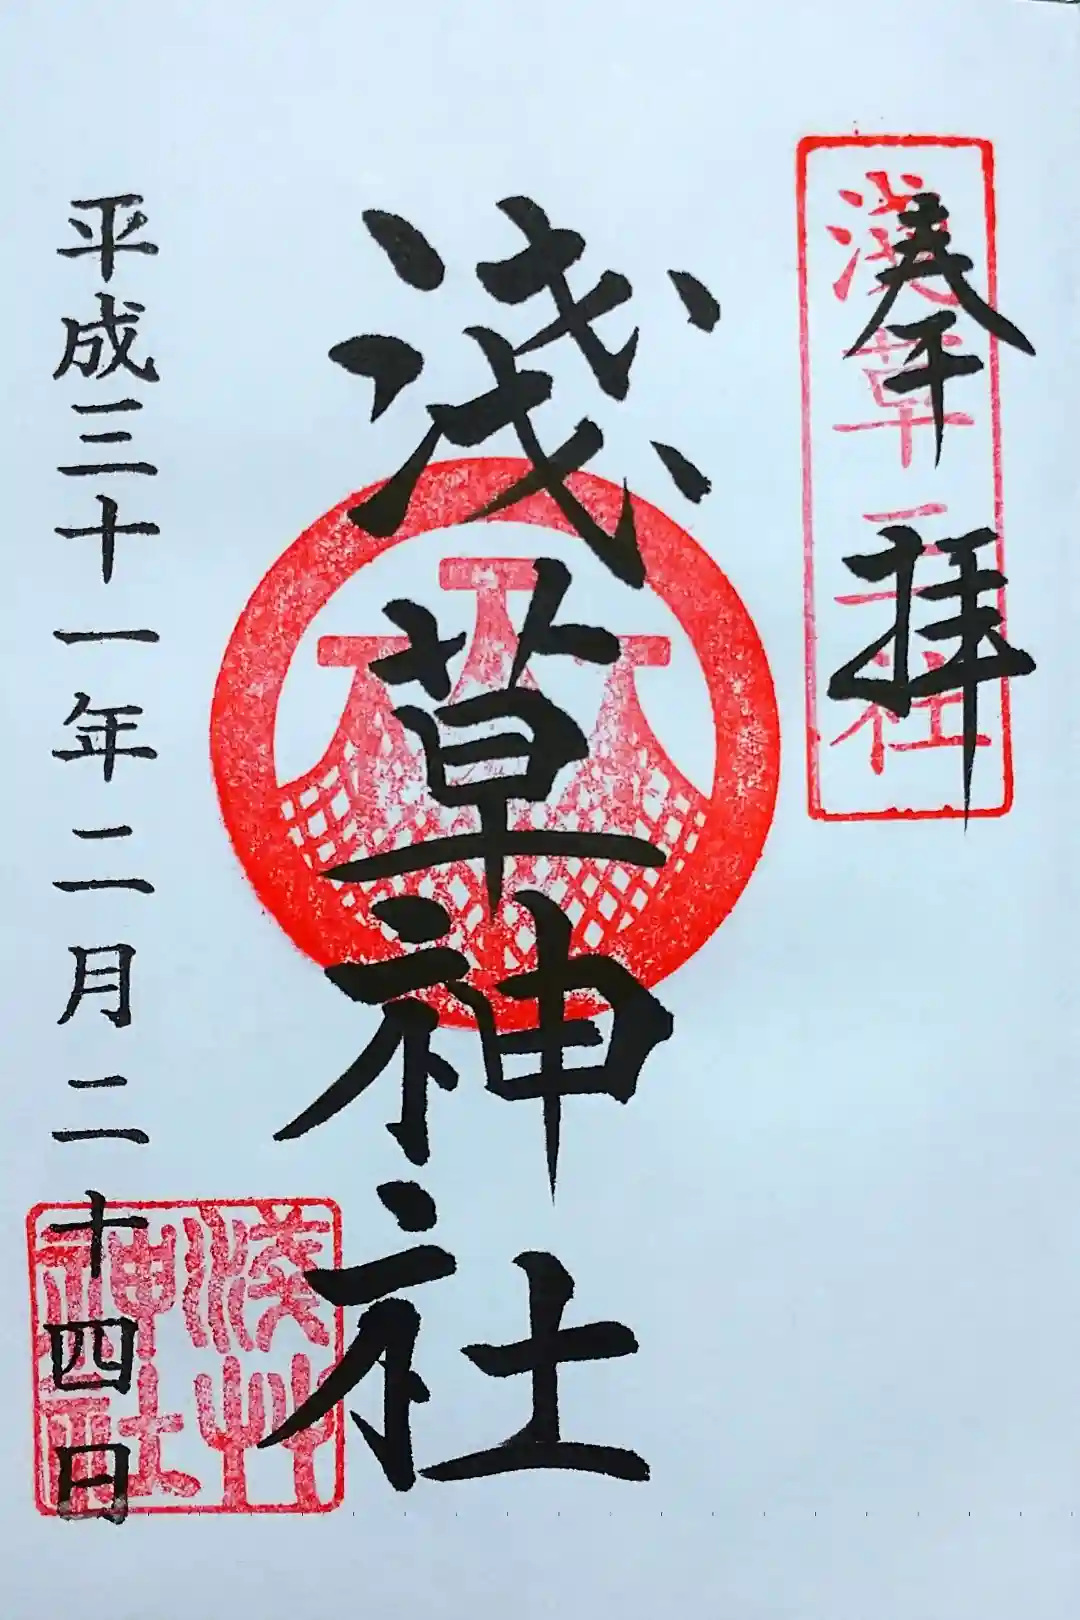 奉拝
淺草三社
淺草神社
平成三十一年二月二十四日
淺艸
神社